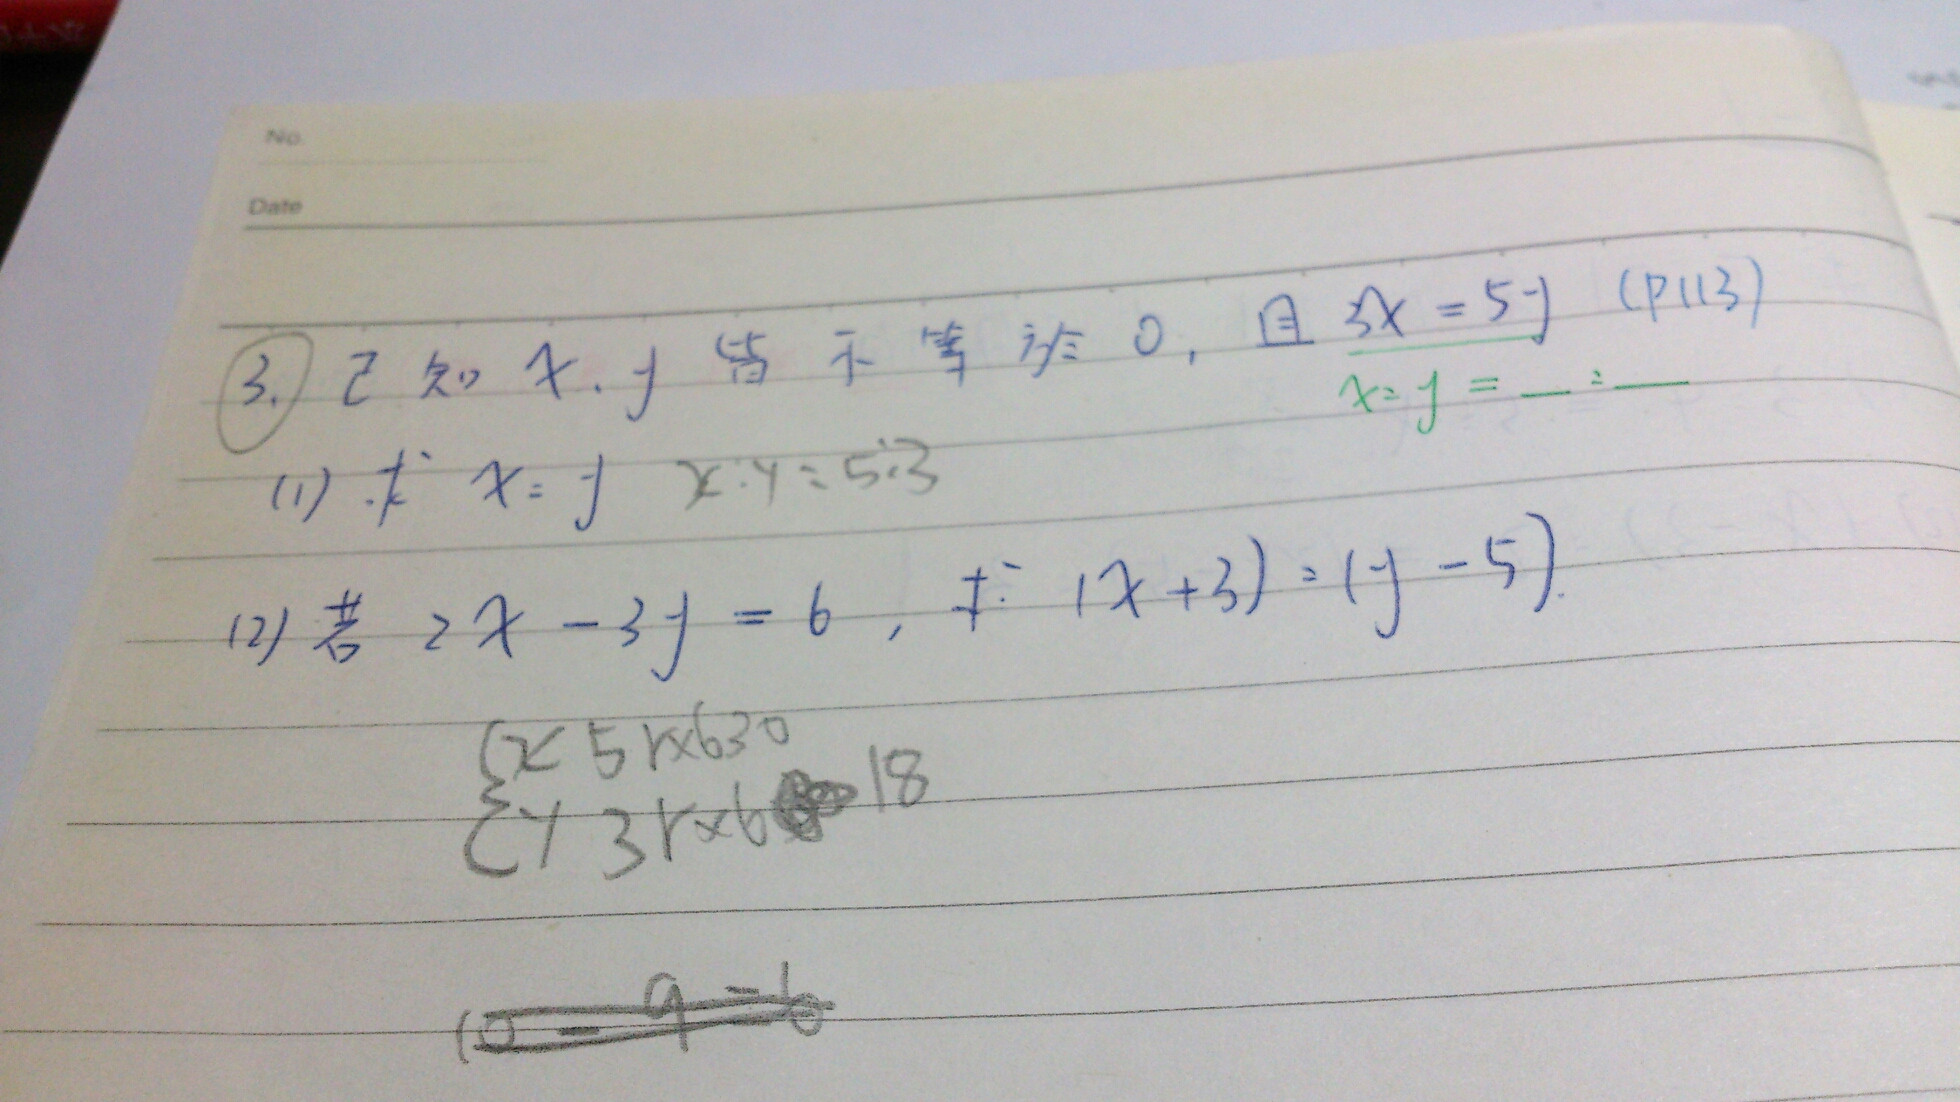 No.
Date
3. 已知 x、y 皆不等於 0, 且 3x = 5y (P113)
x:y = __:__
(1) 求 x:y x:y=5:3
(2) 若 2x - 3y = 6, 求 (x+3):(y-5).
{x 5r×6 30
{y 3r×6 18
10 - 9 = 6